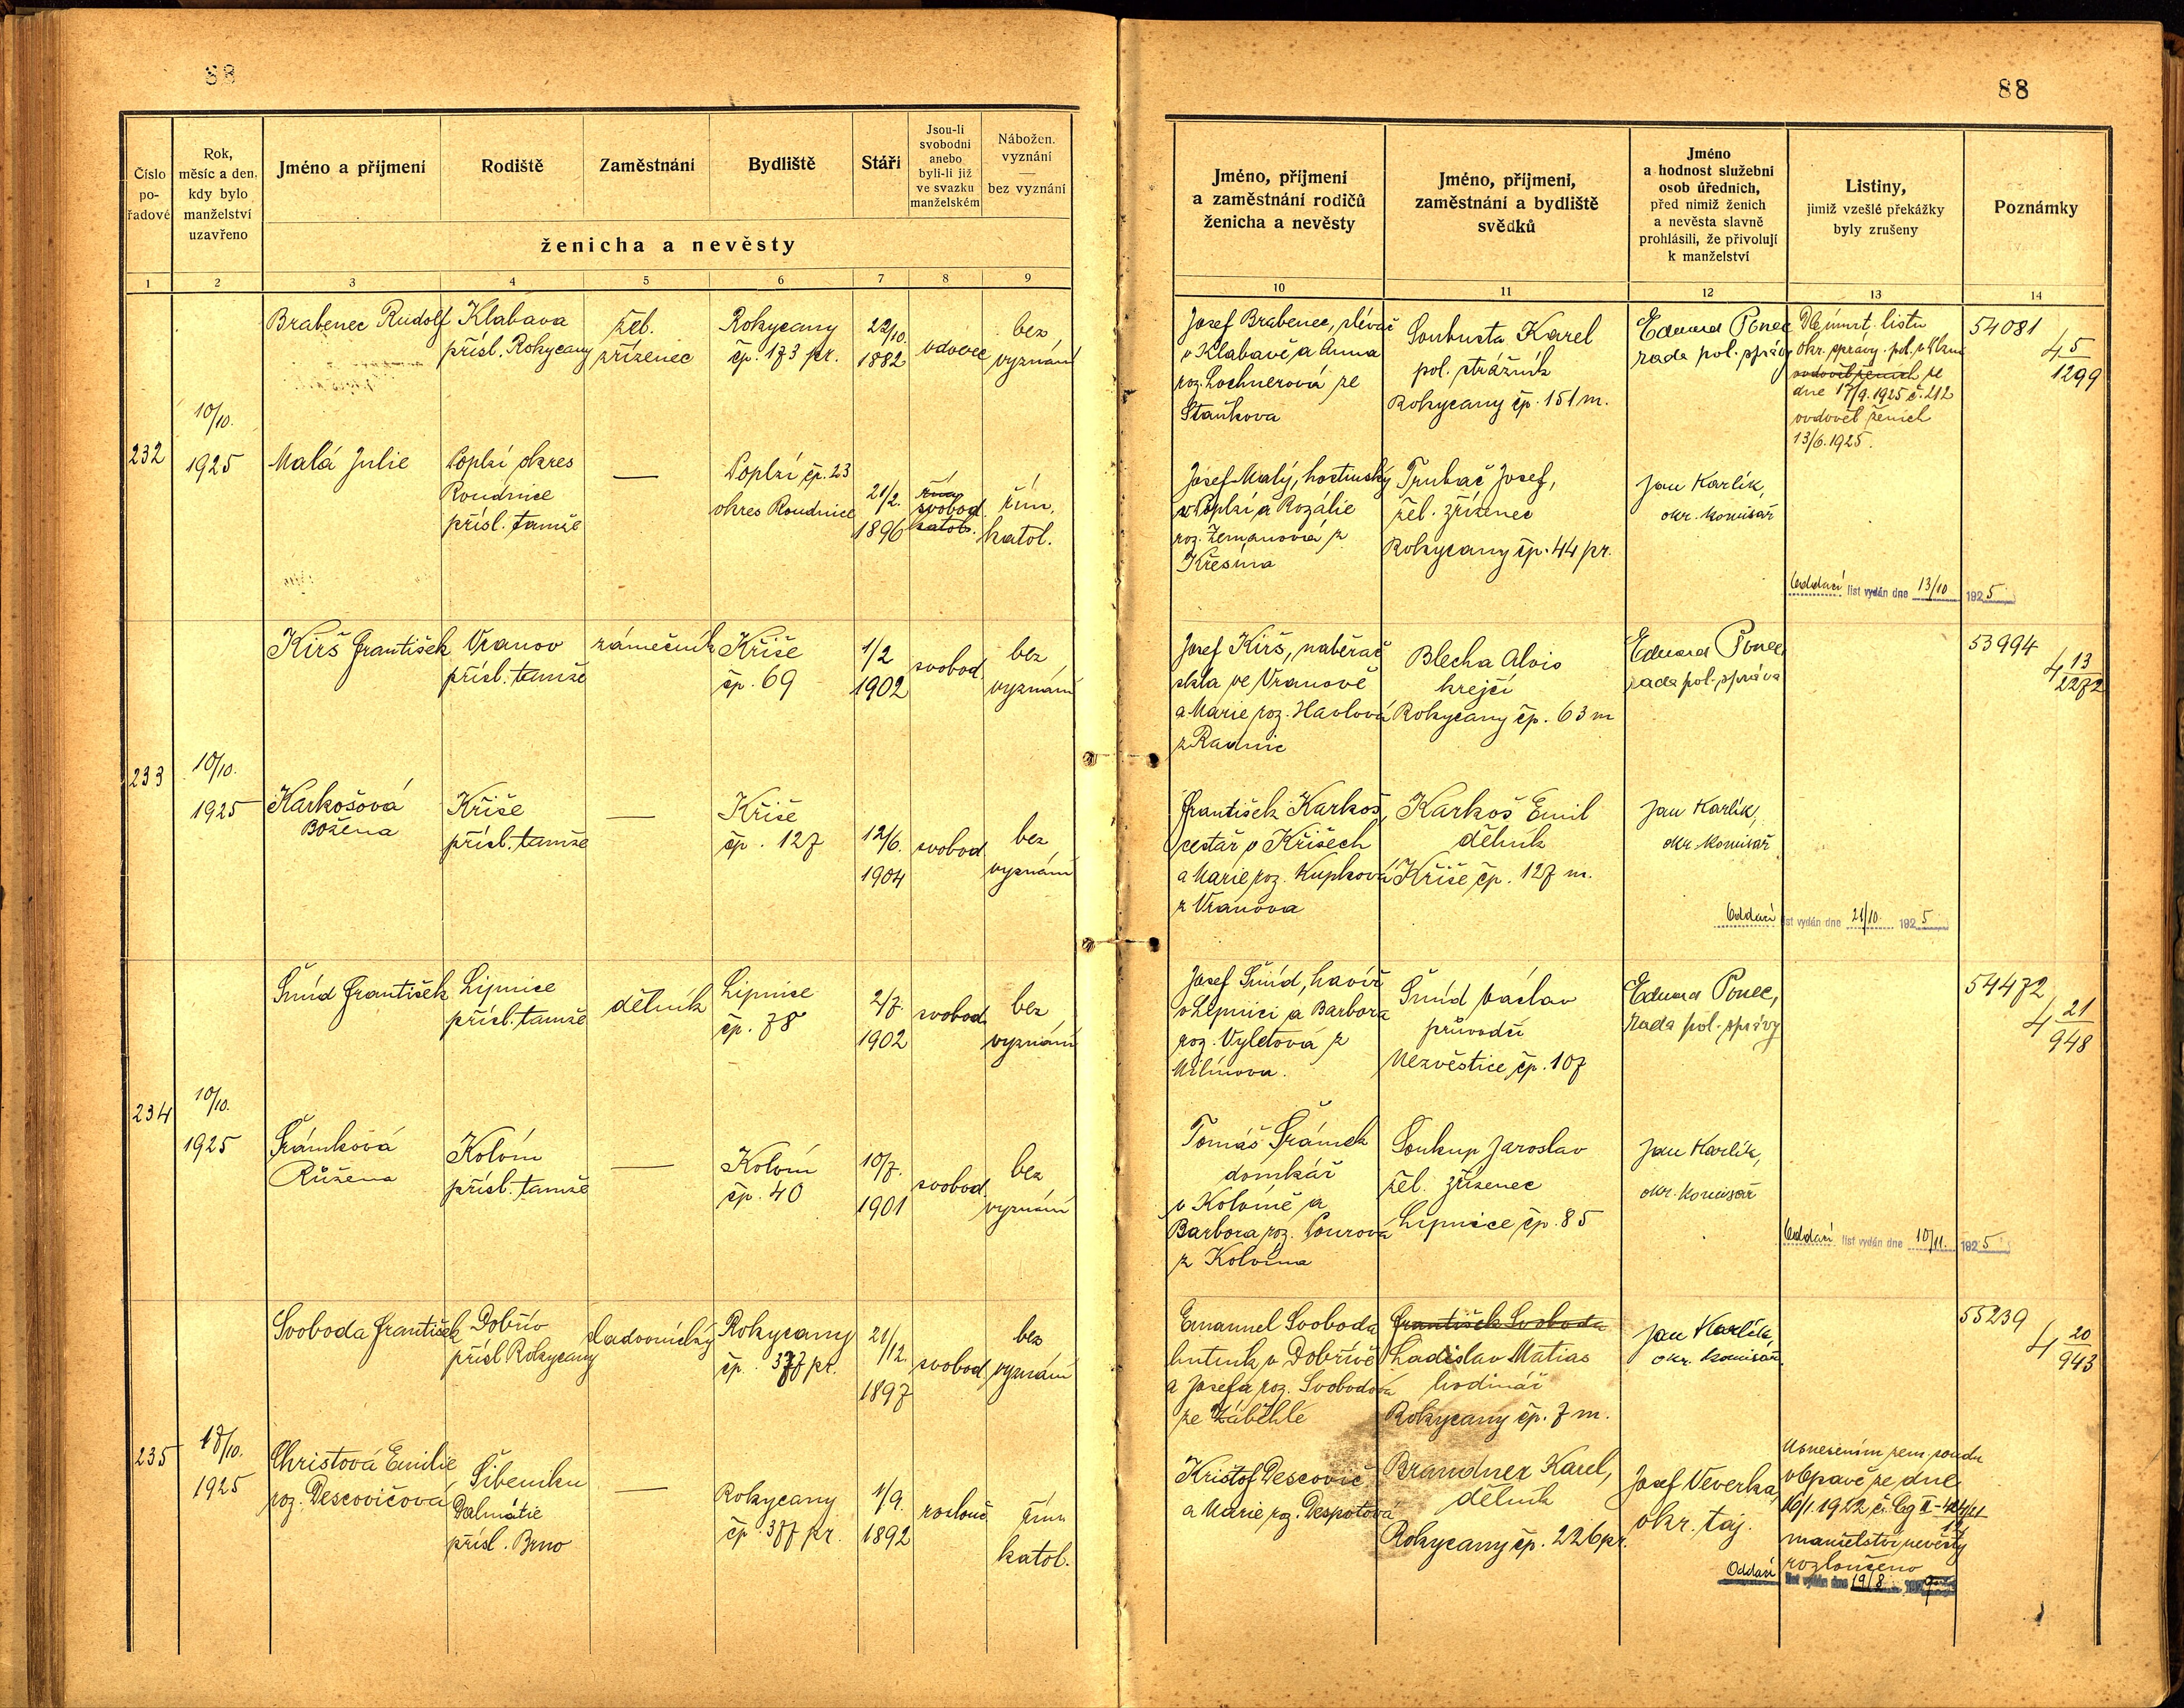 88
Číslo pořadové
Rok, měsíc a den, kdy bylo manželství uzavřeno
Jméno a příjmení
Rodiště
Zaměstnání
Bydliště
Stáří
Jsou-li svobodni anebo byli-li již ve svazku manželském
Nábožen. vyznání — bez vyznání
ženicha a nevěsty
1 2 3 4 5 6 7 8 9
232
10/10.
1925
Brabenec Rudolf
Klabava
přísl. Rokycany
žel.
zřízenec
Rokycany
čp. 173 pr.
22/10.
1882
vdovec
bez
vyznání
Malá Julie
Poplzí okres
Roudnice
přísl. tamže
—
Poplzí čp. 23
okres Roudnice
21/2.
1896
řím.
svobod.
katol.
řím.
katol.
233
10/10.
1925
Kirš František
Vranov
přísl. tamže
zámečník
Kříše
čp. 69
1/2
1902
svobod.
bez
vyznání
Karkošová
Božena
Kříše
přísl. tamže
—
Kříše
čp. 127
12/6.
1904
svobod.
bez
vyznání
234
10/10.
1925
Šmíd František
Lipnice
přísl. tamže
dělník
Lipnice
čp. 78
2/7.
1902
svobod.
bez
vyznání
Šrámková
Růžena
Kolvín
přísl. tamže
—
Kolvín
čp. 40
10/7.
1901
svobod.
bez
vyznání
235
17/10.
1925
Svoboda František
Dobřív
přísl Rokycany
sladovnický
Rokycany
čp. 377 pr.
21/12.
1897
svobod.
bez
vyznání
Christová Emilie
roz. Descovičova
Šibeniku
Dalmátie
přísl. Brno
—
Rokycany
čp 377 pr.
1/9.
1892
rozlouč
řím
katol.
88
Jméno, příjmení a zaměstnání rodičů ženicha a nevěsty
Jméno, příjmení, zaměstnání a bydliště svědků
Jméno a hodnost služební osob úředních, před nimiž ženich a nevěsta slavně prohlásili, že přivolují k manželství
Listiny, jimiž vzešlé překážky byly zrušeny
Poznámky
10 11 12 13 14
Josef Brabenec, slévač
v Klabavě a Anna
roz. Lochnerová ze
Staňkova
Soukusta Karel
pol. strážník
Rokycany čp. 151 m.
Eduard Ponec
rada pol. správy
Dle úmrt. listu
okr. správy. pol. v
ovdověl ženich ze
dne 17/9. 1925 č. 212
ovdověl ženich
13/6. 1925.
54081
4 5/1299
Josef Malý, hostinský
v Poplzí a Rozálie
roz. Zemanová z
Křesína
Trubač Josef,
žel. zřízenec
Rokycany čp. 44 pr.
Jan Karlík,
okr. komisař
Oddací list vydán dne 13/10 1925
Josef Kirš, naběrač
skla ve Vranově
a Marie roz. Havlová
z Radnic
Blecha Alois
krejčí
Rokycany čp. 63 m
Eduard Ponec,
rada pol. správa
53994
4 13/2272
František Karkoš,
cestář v Kříšech
a Marie roz. Kupková
z Vranova
Karkoš Emil
dělník
Kříše čp. 127 m.
Jan Karlík,
okr. komisař
Oddací list vydán dne 21/10. 1925
Josef Šmíd, havíř
v Lipnici a Barbora
roz. Vyletová z
Milínova.
Šmíd Václav
průvodčí
Nezvěstice čp. 107
Eduard Ponec,
rada pol. správy
54472
4 21/948
Tomáš Šrámek
domkář
v Kolvíně a
Barbora roz. Pourová
z Kolvína
Soukup Jaroslav
žel. zřízenec
Lipnice čp. 85
Jan Karlík,
okr. komisař
Oddací list vydán dne 10/11. 1925
Emanuel Svoboda
hutník v Dobřívě
a Josefa roz. Svobodová
ze Záběhlé
František Svoboda
Ladislav Matias
hodinář
Rokycany čp. 7 m.
Jan Karlík,
okr. komisař.
55239
4 20/943
Krištof Descovič
a Marie roz. Despotová
Brandner Karel,
dělník
Rokycany čp. 226 pr.
Josef Veverka,
okr. taj.
Usnesením zem. soudu
v Opavě ze dne
16/1. 1922 č. Cg II
manželství nevěsty
rozloučeno
Oddací list vydán dne 19/8